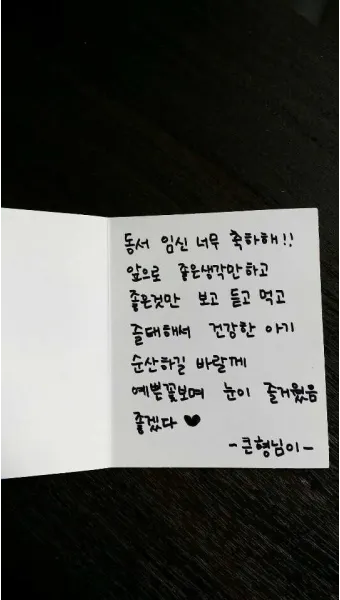 동서 임신 너무 축하해!!
앞으로 좋은생각만하고
좋은것만 보고 듣고 먹고
즐태해서 건강한 아기
순산하길 바랄게
예쁜꽃보며 눈이 즐거웠음
좋겠다 ♥
-큰형님이-